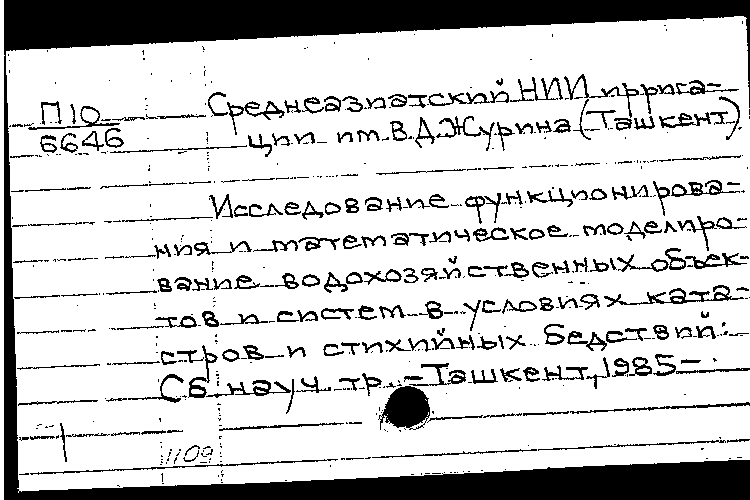 П10
6646
Среднеазиатский НИИ иррига-
ции им. В.Д.Журина (Ташкент).
Исследование функционирова-
ния и математическое моделиро-
вание водохозяйственных объек-
тов и систем в условиях ката-
строф и стихийных бедствий:
Сб. науч. тр. – Ташкент, 1985 – .
1109